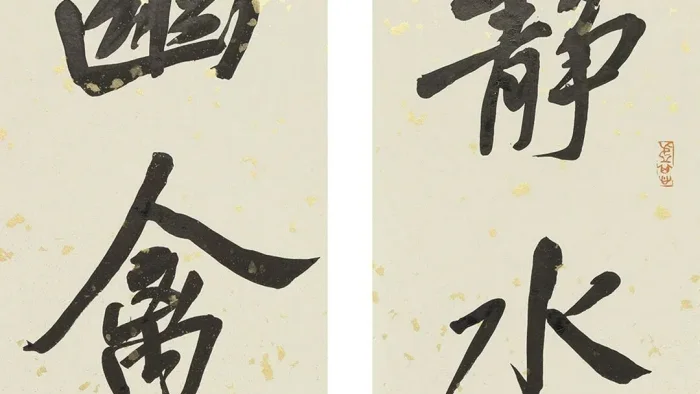 静水
幽禽